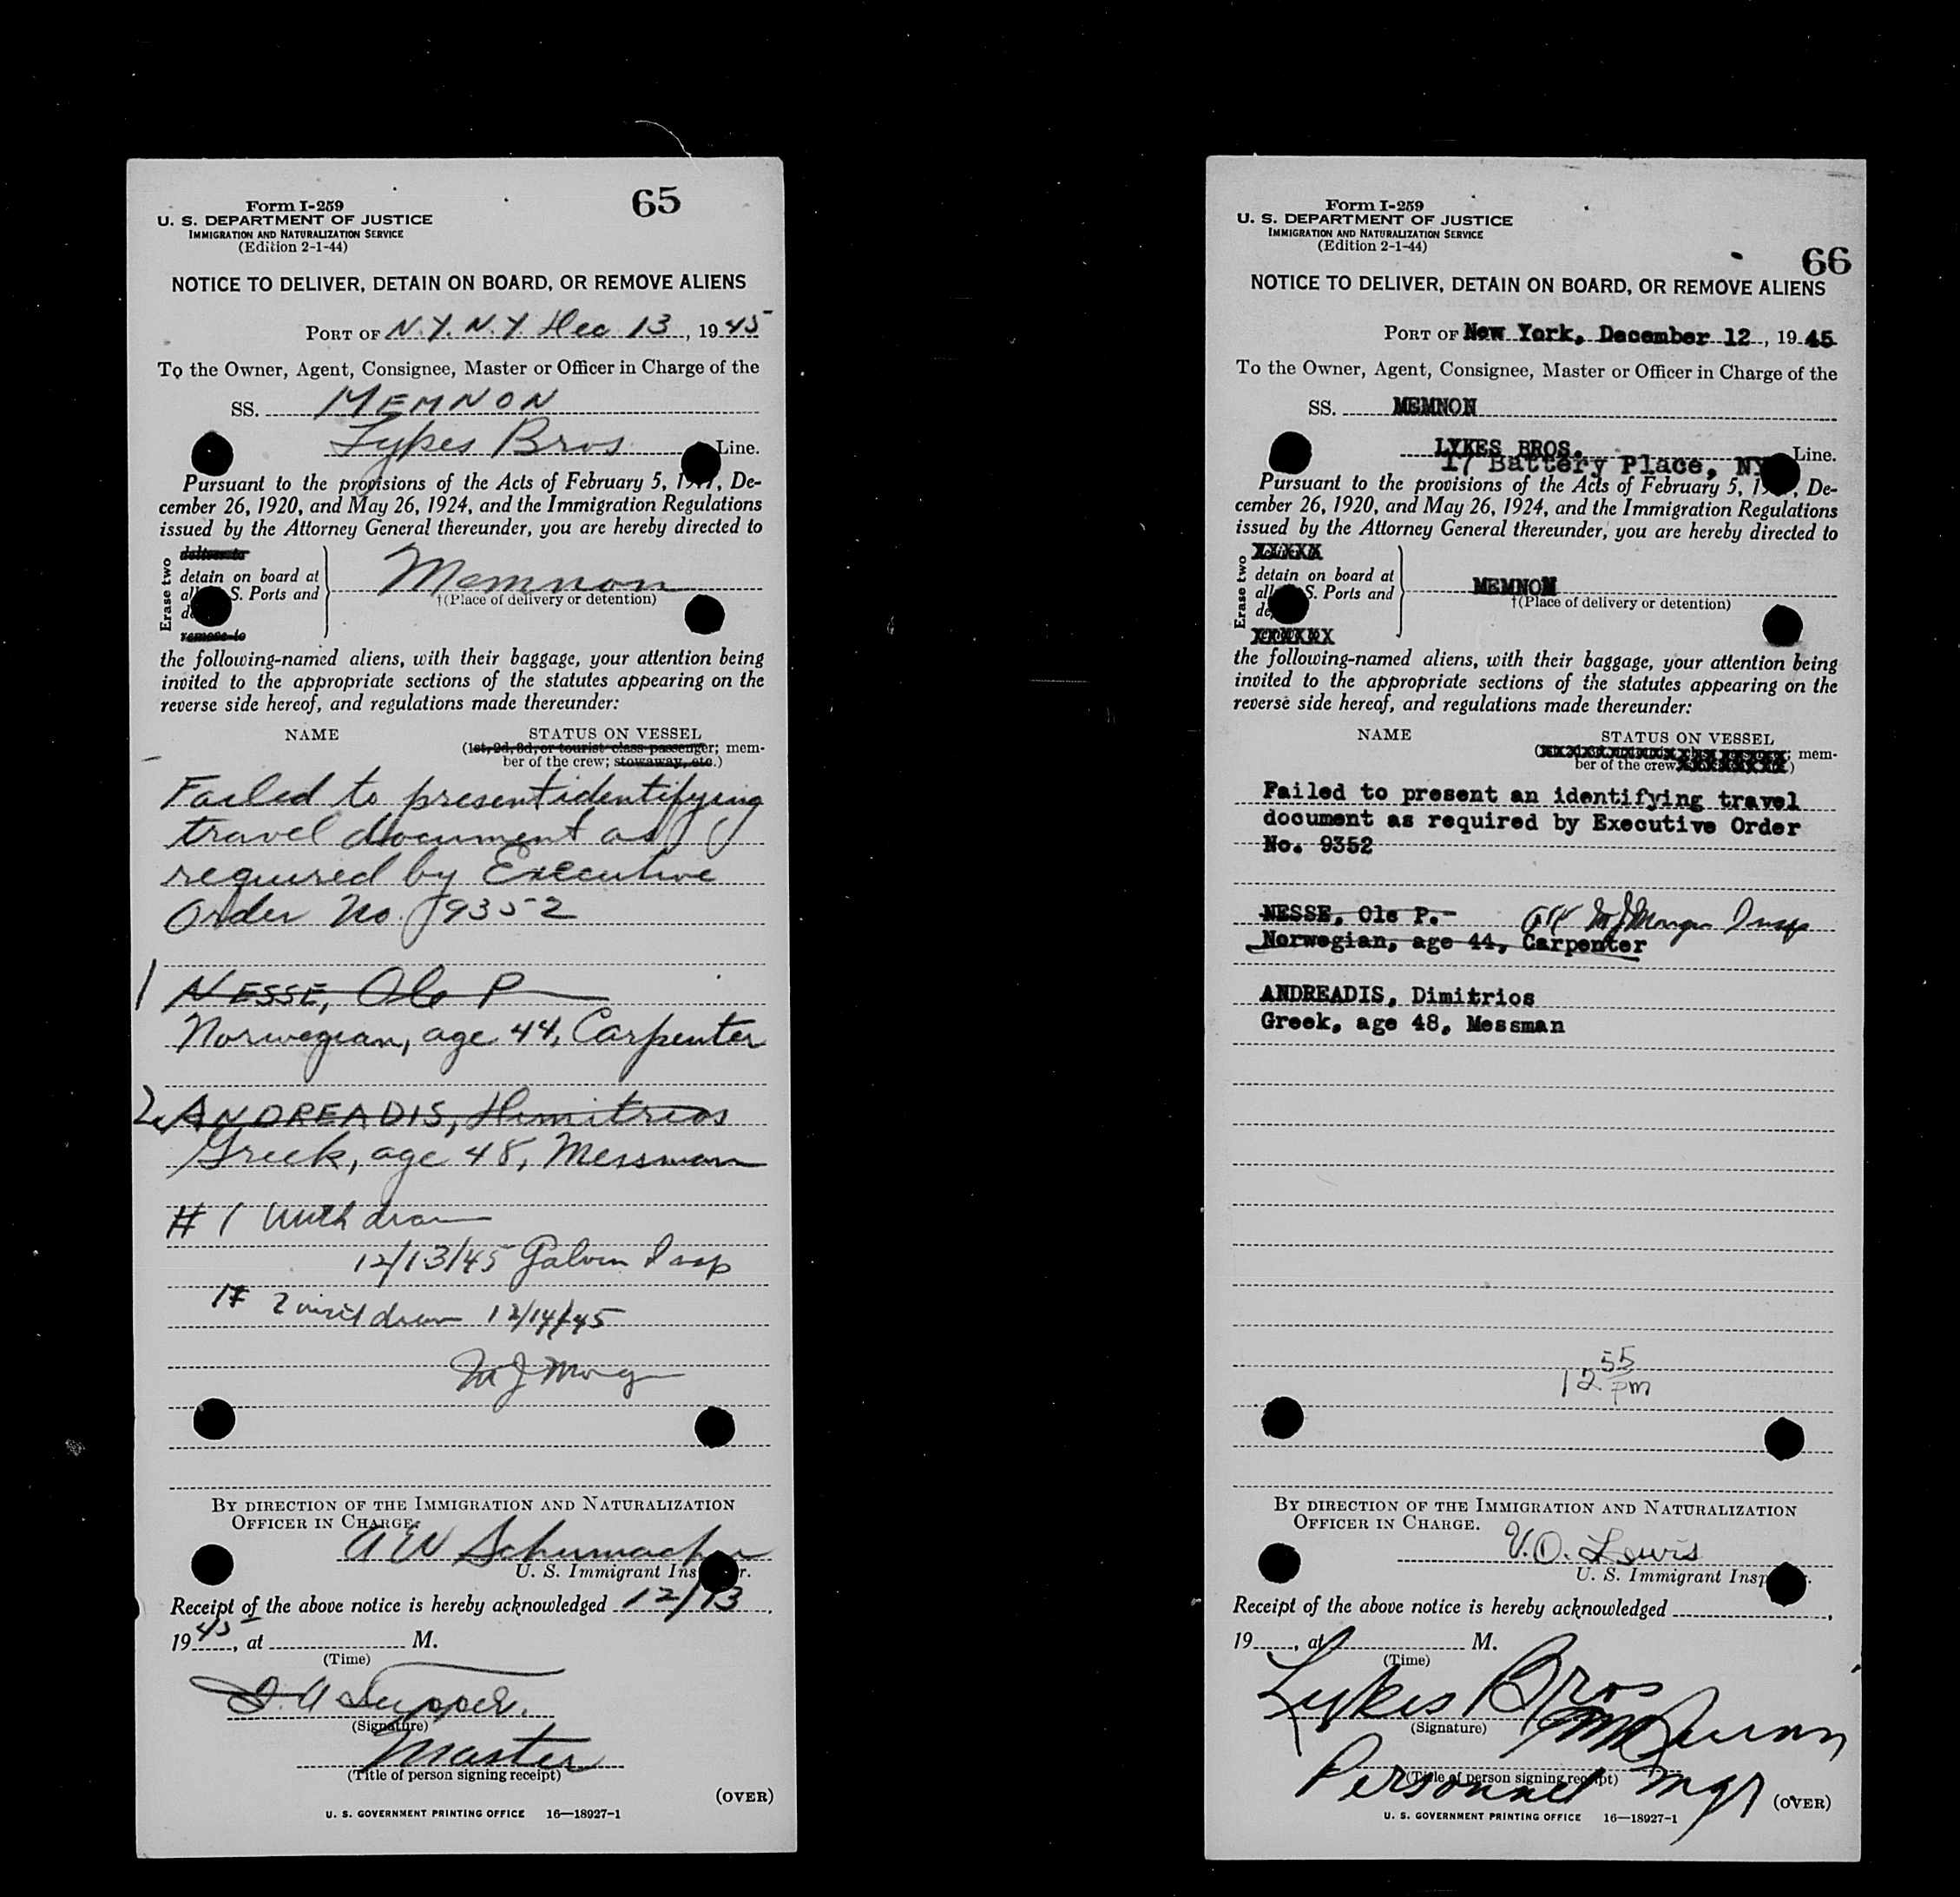 65
Form I-259
U. S. DEPARTMENT OF JUSTICE
IMMIGRATION AND NATURALIZATION SERVICE
(Edition 2-1-44)
NOTICE TO DELIVER, DETAIN ON BOARD, OR REMOVE ALIENS
PORT OF N.Y. N.Y. Dec 13, 1945
To the Owner, Agent, Consignee, Master or Officer in Charge of the
SS. MEMNON
Lykes Bros Line.
Pursuant to the provisions of the Acts of February 5, De-
cember 26, 1920, and May 26, 1924, and the Immigration Regulations
issued by the Attorney General thereunder, you are hereby directed to
Erase two
deliver to
detain on board at
all S. Ports and
remove to
Memnon
†(Place of delivery or detention)
the following-named aliens, with their baggage, your attention being
invited to the appropriate sections of the statutes appearing on the
reverse side hereof, and regulations made thereunder:
NAME STATUS ON VESSEL
(1st, 2d, 3d, or tourist class passenger; mem-
ber of the crew; stowaway, etc.)
Failed to present identifying
travel document as
required by Executive
Order No. 9352
1 NESSE, Ole P
Norwegian, age 44, Carpenter
2 ANDREADIS, Dimitrios
Greek, age 48, Messman
# 1 Withdrawn
12/13/45 Galvin Insp
# 2 withdrawn 12/14/45
M J Morgan
BY DIRECTION OF THE IMMIGRATION AND NATURALIZATION
OFFICER IN CHARGE.
A W Schumacher
U. S. Immigrant Inspector.
Receipt of the above notice is hereby acknowledged 12/13,
1945, at M.
(Time)
(Signature)
Master
(Title of person signing receipt)
(OVER)
U. S. GOVERNMENT PRINTING OFFICE 16—18927-1
66
Form I-259
U. S. DEPARTMENT OF JUSTICE
IMMIGRATION AND NATURALIZATION SERVICE
(Edition 2-1-44)
NOTICE TO DELIVER, DETAIN ON BOARD, OR REMOVE ALIENS
PORT OF New York, December 12, 1945
To the Owner, Agent, Consignee, Master or Officer in Charge of the
SS. MEMNON
LYKES BROS. Line.
17 Battery Place, NY
Pursuant to the provisions of the Acts of February 5, De-
cember 26, 1920, and May 26, 1924, and the Immigration Regulations
issued by the Attorney General thereunder, you are hereby directed to
Erase two
XXXXX
detain on board at
all S. Ports and
XXXXXX
MEMNON
†(Place of delivery or detention)
the following-named aliens, with their baggage, your attention being
invited to the appropriate sections of the statutes appearing on the
reverse side hereof, and regulations made thereunder:
NAME STATUS ON VESSEL
mem-
ber of the crew
Failed to present an identifying travel
document as required by Executive Order
No. 9352
NESSE, Ole P. M J Morgan Insp
Norwegian, age 44, Carpenter
ANDREADIS, Dimitrios
Greek, age 48, Messman
12 55 pm
BY DIRECTION OF THE IMMIGRATION AND NATURALIZATION
OFFICER IN CHARGE.
V. O. Lewis
U. S. Immigrant Inspector.
Receipt of the above notice is hereby acknowledged ,
19 , at M.
(Time)
Lykes Bros
(Signature)
Personnel Mgr
(Title of person signing receipt)
(OVER)
U. S. GOVERNMENT PRINTING OFFICE 16—18927-1